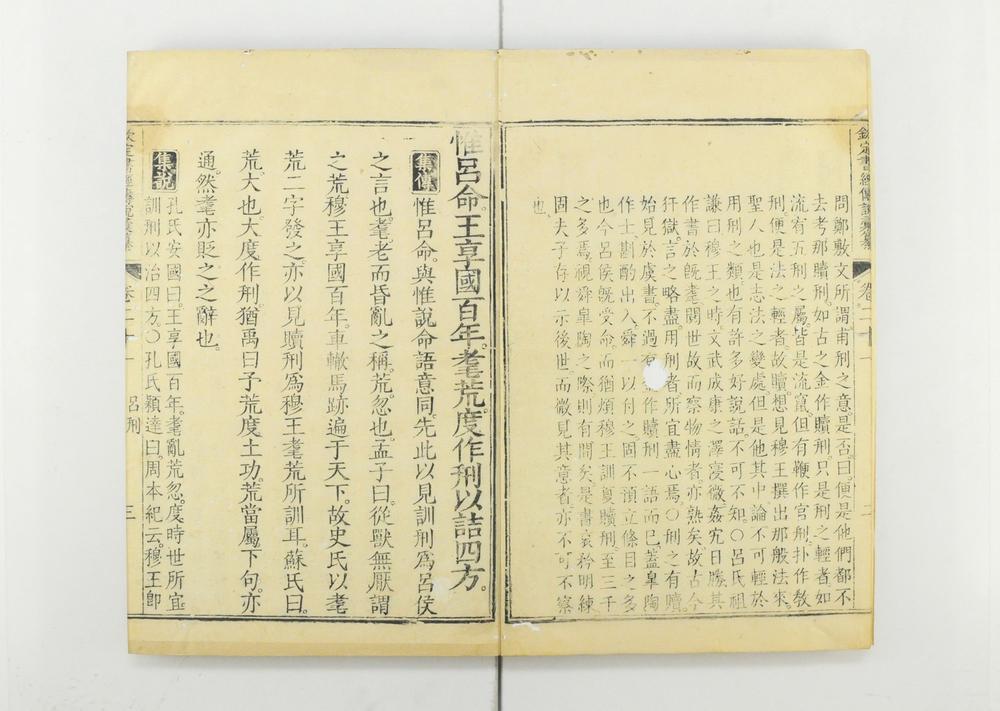 欽定書經傳說彙纂 卷二十一
問鄭敷文所謂甫刑之意是否曰便是他們都不
去考那贖刑如古之金作贖刑只是刑之輕者如
流宥五刑之屬皆是流竄但有鞭作官刑扑作教
刑便是法之輕者故贖想見穆王撰出那般法來
聖人也是志法之變處但是他其中論不可輕於
用刑之類也有許多好說話不可不知〇呂氏祖
謙曰穆王之時文武成康之澤寖微姦宄日勝其
作書於旣耄閱世故而察物情者亦熟矣故古今
犴獄言之略盡用刑者所宜盡心焉〇刑之有贖
始見於虞書不過有金作贖刑一語而已蓋皐陶
作士斟酌出入舜一以付之固不須立條目之多
也今呂侯旣受命而猶煩穆王訓夏贖刑至三千
之多焉視舜皐陶之際則有間矣是書哀矜明練
固夫子存以示後世而微見其意者亦不可不察
也
惟呂命王享國百年耄荒度作刑以詰四方
集傳 惟呂命與惟說命語意同先此以見訓刑爲呂侯
之言也耄老而昏亂之稱荒忽也孟子曰從獸無厭謂
之荒穆王享國百年車轍馬跡遍于天下故史氏以耄
荒二字發之亦以見贖刑爲穆王耄荒所訓耳蘇氏曰
荒大也大度作刑猶禹曰予荒度土功荒當屬下句亦
通然耄亦貶之之辭也
集說 孔氏安國曰王享國百年耄亂荒忽度時世所宜
訓刑以治四方〇孔氏穎達曰周本紀云穆王卽
欽定書經傳說彙纂 卷二十一 呂刑 三